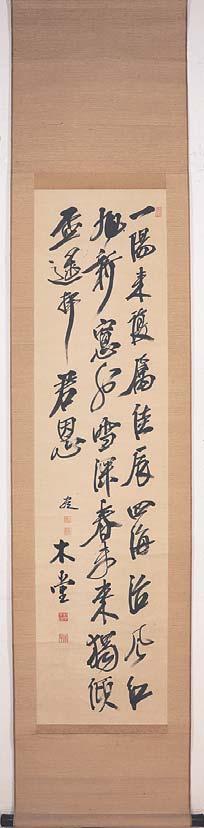 一陽来復属佳辰四海治風紅
旭新窓外雪深春未来獨傾
盃遥拝君恩
木堂